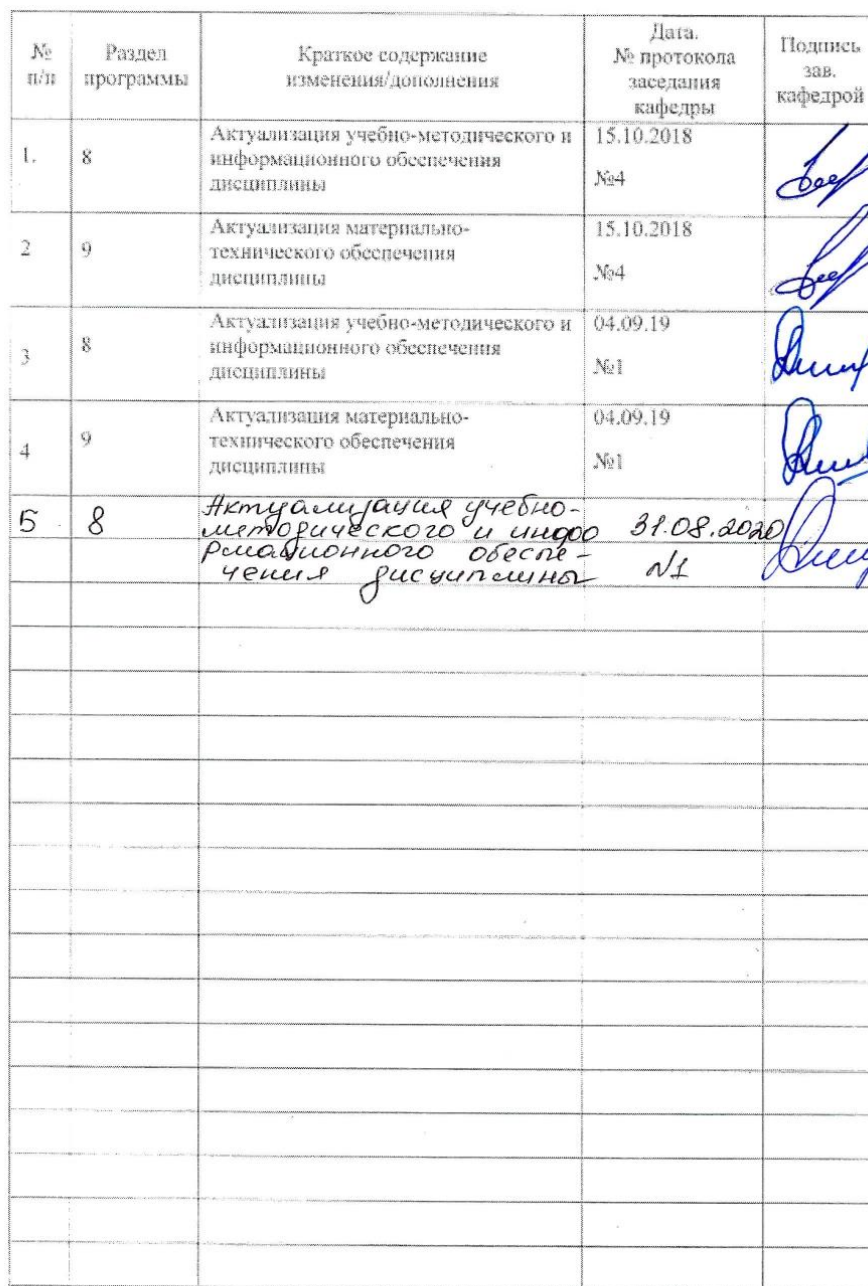 № п/п
Раздел программы
Краткое содержание изменения/дополнения
Дата. № протокола заседания кафедры
Подпись зав. кафедрой
1.
8
Актуализация учебно-методического и
информационного обеспечения
дисциплины
15.10.2018
№4
2
9
Актуализация материально-
технического обеспечения
дисциплины
15.10.2018
№4
3
8
Актуализация учебно-методического и
информационного обеспечения
дисциплины
04.09.19
№1
4
9
Актуализация материально-
технического обеспечения
дисциплины
04.09.19
№1
5
8
Актуализация учебно-
методического и инфо
рмационного обеспе-
чения дисциплины
31.08.2020
№1